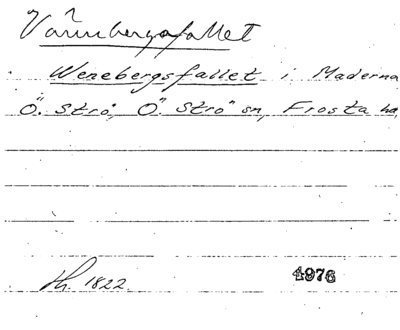 Värnbergafallet
Wenebergsfallet i Maderna
Ö. Strö, Ö. Strö sn, Frosta ha
th. 1822.
4976